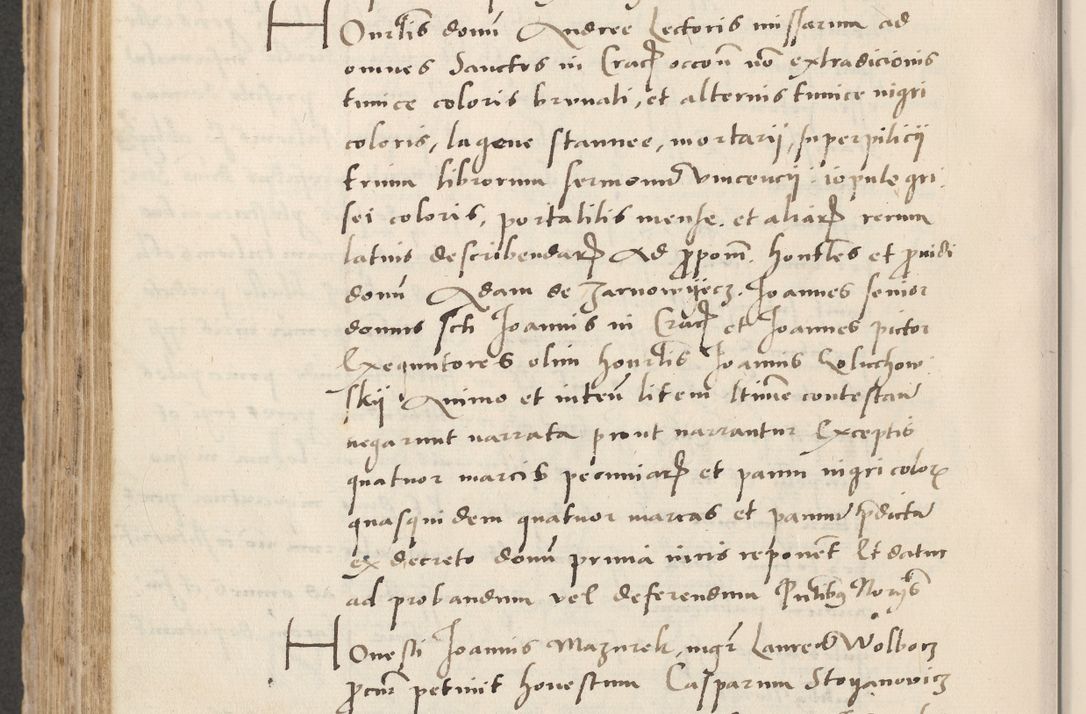 Honrlis domi Andree Lectoris missarum ad
omnes Sanctos in Crac occon non extradicionis
tunice coloris brunali, et alternis tunice nigri
coloris, lagene stannee, mortarij, superpilicij
trium librorum sermonum Vincencij iopule gri
sei coloris, portatilis mense. et aliarum rerum
latius describendarum Ad propom. honbles et providi
domi Adam de Zarnowyecz. Joannes senior
domus scti Joannis in Crac et Joannes pictor
Exequutores olim honrlis Joannis Coluchow
skij Animo et inten litem ltime contestan
negarunt narrata prout narrantur Exceptis
quatuor marcis pecuniarum et panni nigri color
quasquidem quatuor marcas et pannum predictum
ex decreto domi primia iuris reponent Et datur
ad probandum vel deferendum Pntibus Norys
Honesti Joannis Mazurek, mgr Laure de Wolborz
procur petiuit honestum Casparum Stoyanovicz